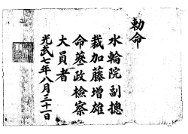 勅命
水輪院副摠
裁加藤增雄
命蔘政檢察
大員者
光武七年八月 日